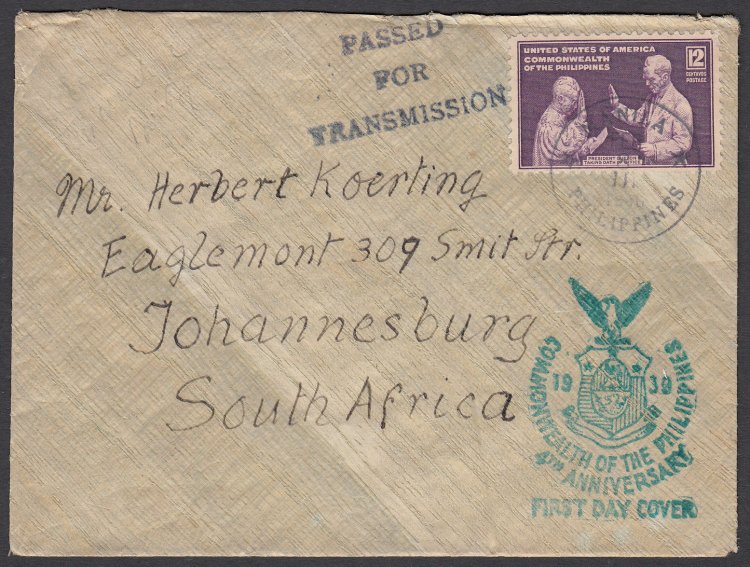 PASSED
FOR
TRANSMISSION
UNITED STATES OF AMERICA
COMMONWEALTH
OF THE PHILIPPINES
12
CENTAVOS
POSTAGE
PRESIDENT QUEZON
TAKING OATH OF OFFICE
PHILIPPINES
Mr. Herbert Koerting
Eaglemont 309 Smit Str.
Johannesburg
South Africa
19 39
COMMONWEALTH OF THE PHILIPPINES
4TH ANNIVERSARY
FIRST DAY COVER